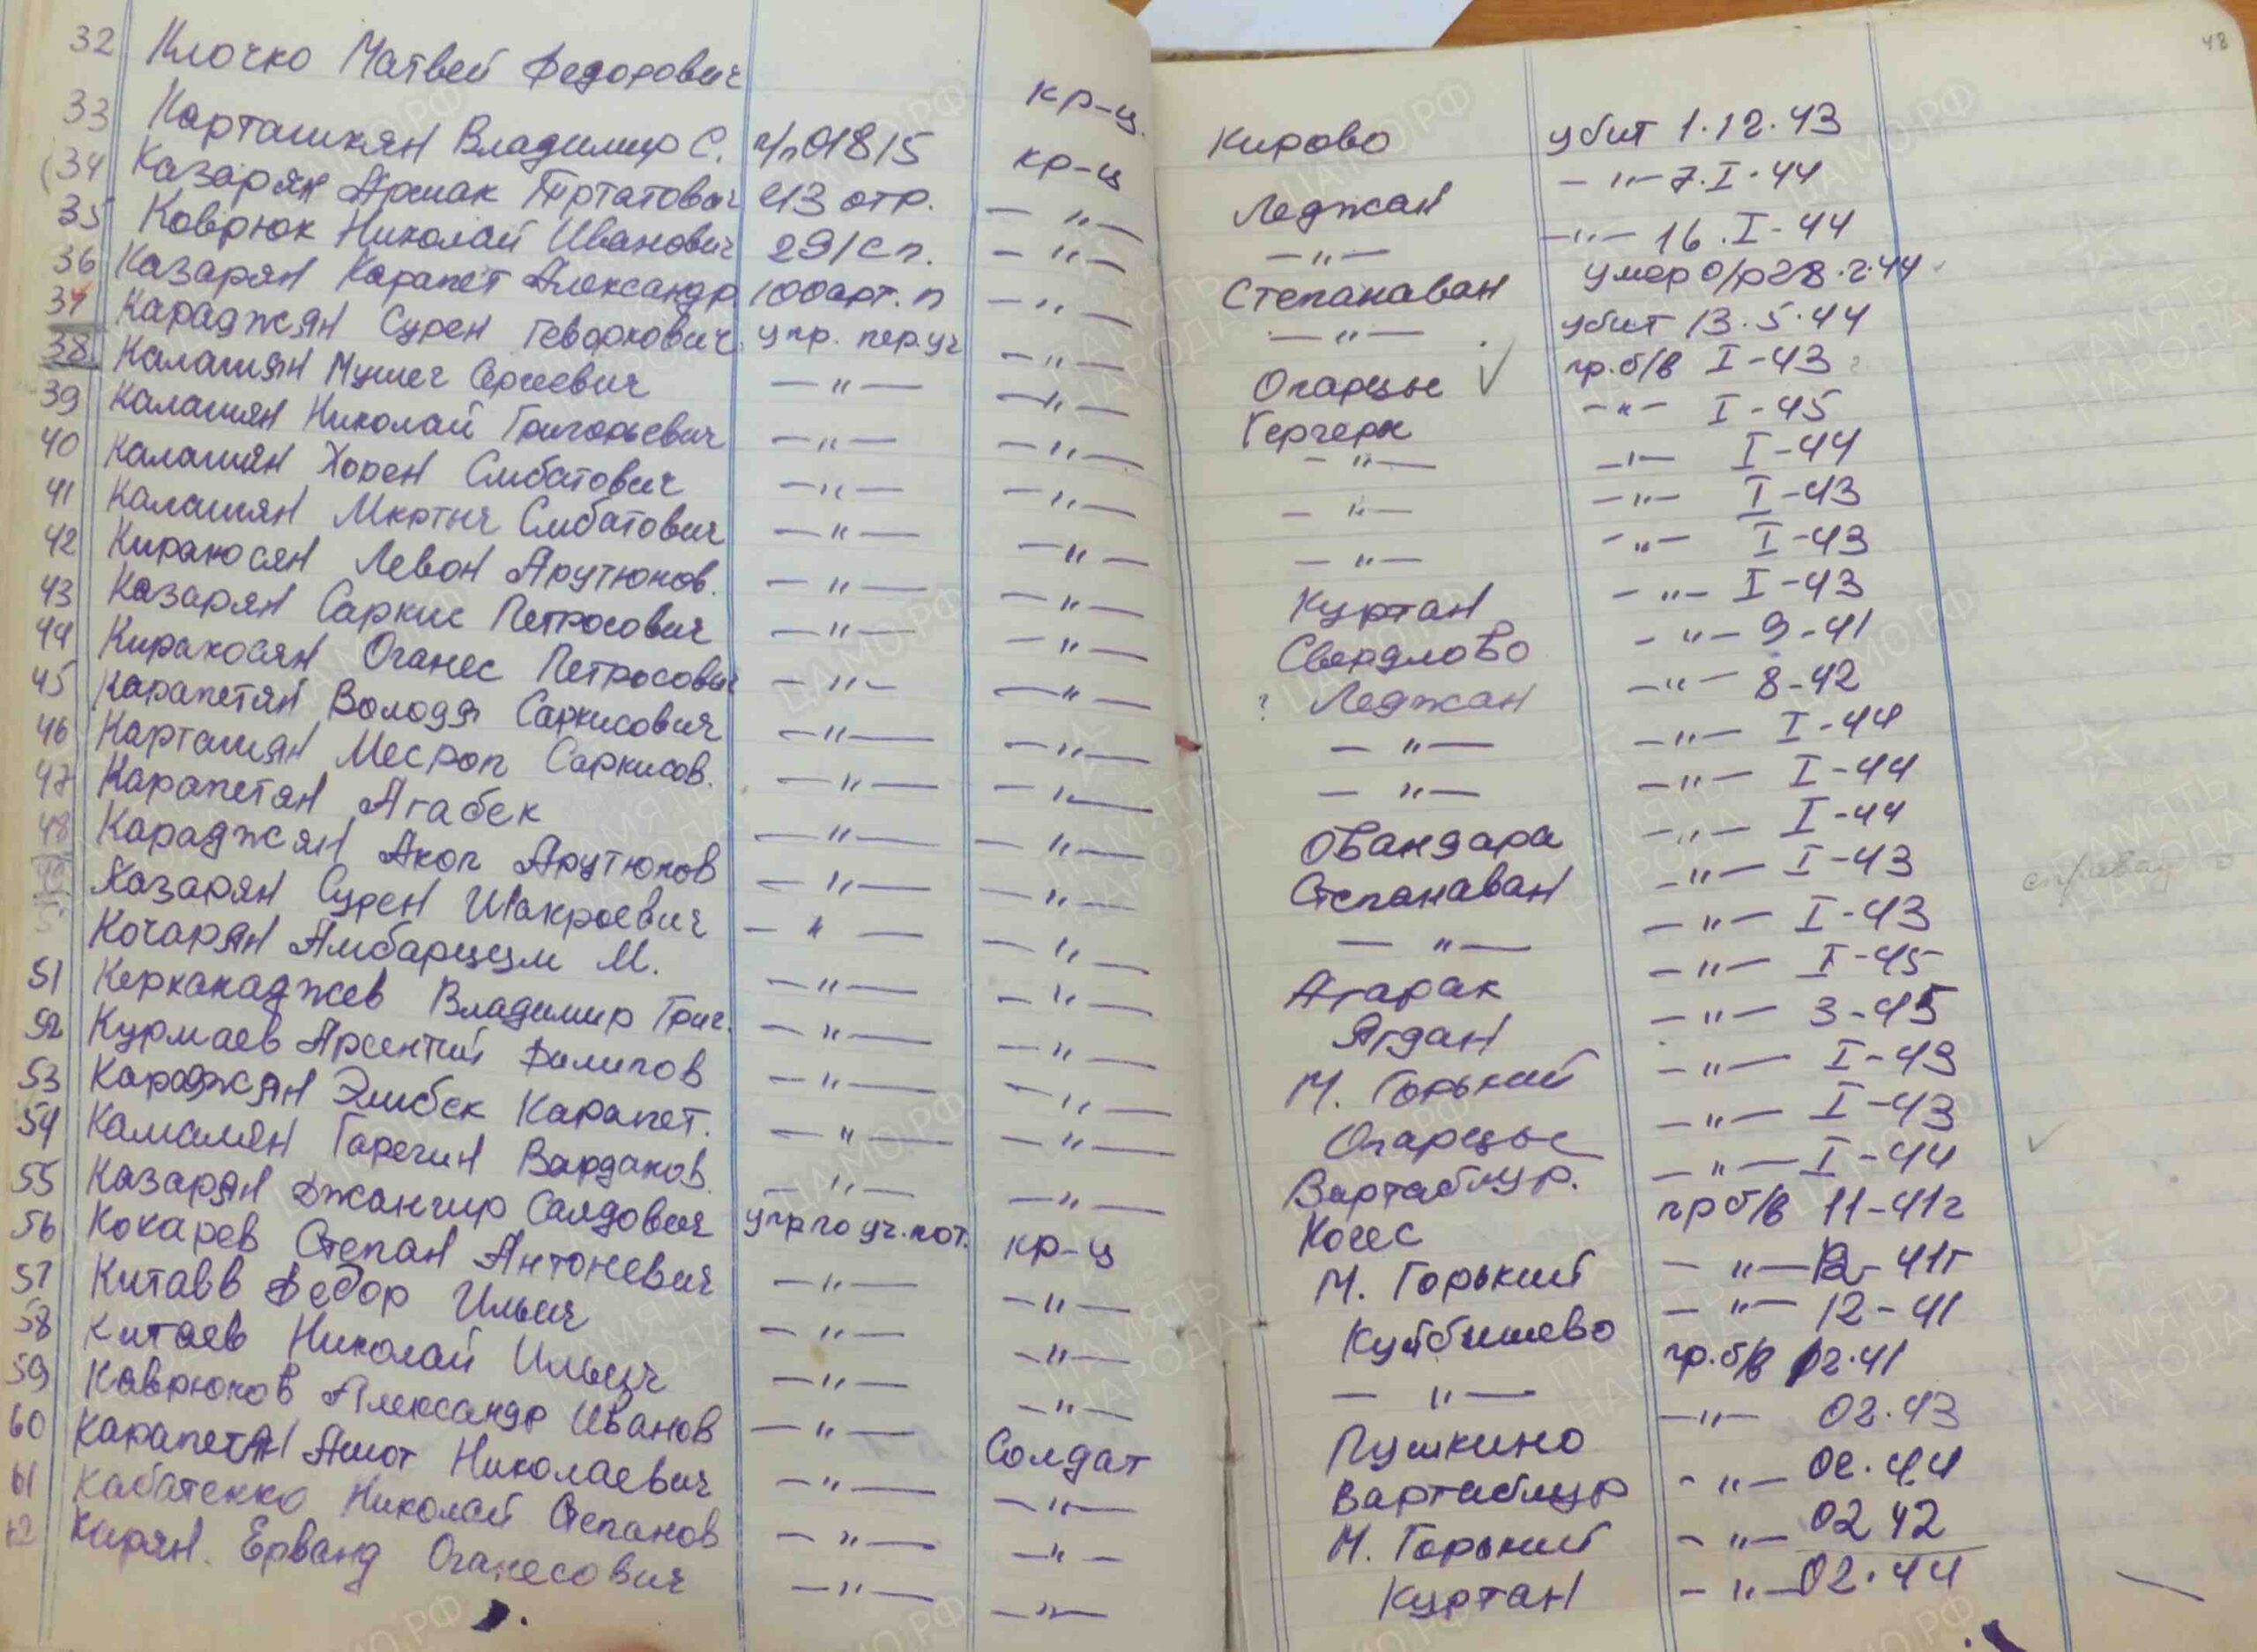 32 Клочко Матвей Федорович кр-ц. Кирово убит 1.12.43
33 Карташян Владимир С. ч/п01815 кр-ц Леджан -"- 7.I-44
34 Казарян Аршак Тртатович 213 отр. -"- -"- -"- 16.I-44
35 Коврюк Николай Иванович 291сп. -"- Степанаван умер о/р 28.2.44
36 Казарян Карапет Александр 100арт.п -"- -"- убит 13.5.44
37 Караджян Сурен Геворкович упр. пер.уч -"- Опарцы ✓ пр.б/в I-43
38 Калашян Мушег Сергеевич -"- -"- Гергеры -"- I-45
39 Калашян Николай Григорьевич -"- -"- -"- -"- I-44
40 Калашян Хорен Смбатович -"- -"- -"- -"- I-43
41 Калашян Мкртыч Смбатович -"- -"- -"- -"- I-43
42 Киракосян Левон Арутюнов. -"- -"- Куртан -"- I-43
43 Казарян Саркис Петросович -"- -"- Свердлово -"- 9-41
44 Киракосян Оганес Петросович -"- -"- ? Леджан -"- 8-42
45 Карапетян Володя Саркисович -"- -"- -"- -"- I-44
46 Карташян Месроп Саркисов. -"- -"- -"- -"- I-44
47 Карапетян Агабек -"- -"- Овандара -"- I-44
48 Караджян Акоп Арутюнов -"- -"- Степанаван -"- I-43
Казарян Сурен Шакроевич -"- -"- -"- -"- I-43
Кочарян Амбарцум М. -"- -"- Агарак -"- I-45
51 Керканаджев Владимир Григ. -"- -"- Агдан -"- 3-45
52 Курмаев Арсентий Филипов -"- -"- М. Горький -"- I-43
53 Караджян Элибек Карапет. -"- -"- Опарцы -"- I-43
54 Камалян Гарегин Варданов. -"- -"- Вартаблур. -"- I-44
55 Казарян Джангир Саядович упр по уч.пот. кр-ц Когес пр б/в 11-41г
56 Кокарев Степан Антоневич -"- -"- М. Горький -"- 12-41г
57 Китавв Федор Ильич -"- -"- Куйбишево -"- 12-41
58 Китаев Николай Ильич -"- -"- -"- пр.б/в 12.41
59 Коврюков Александр Иванов -"- Солдат Пушкино -"- 02.43
60 Карапетян Ашот Николаевич -"- -"- Вартаблур -"- 02.44
61 Кабатенко Николай Степанов -"- -"- М. Горький -"- 02 42
62 Карян. Ерванд Оганесович -"- -"- Куртан -"- 02.44
48